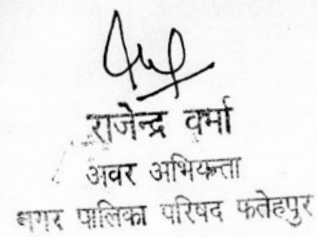 राजेन्द्र वर्मा
अवर अभियन्ता
नगर पालिका परिषद फतेहपुर